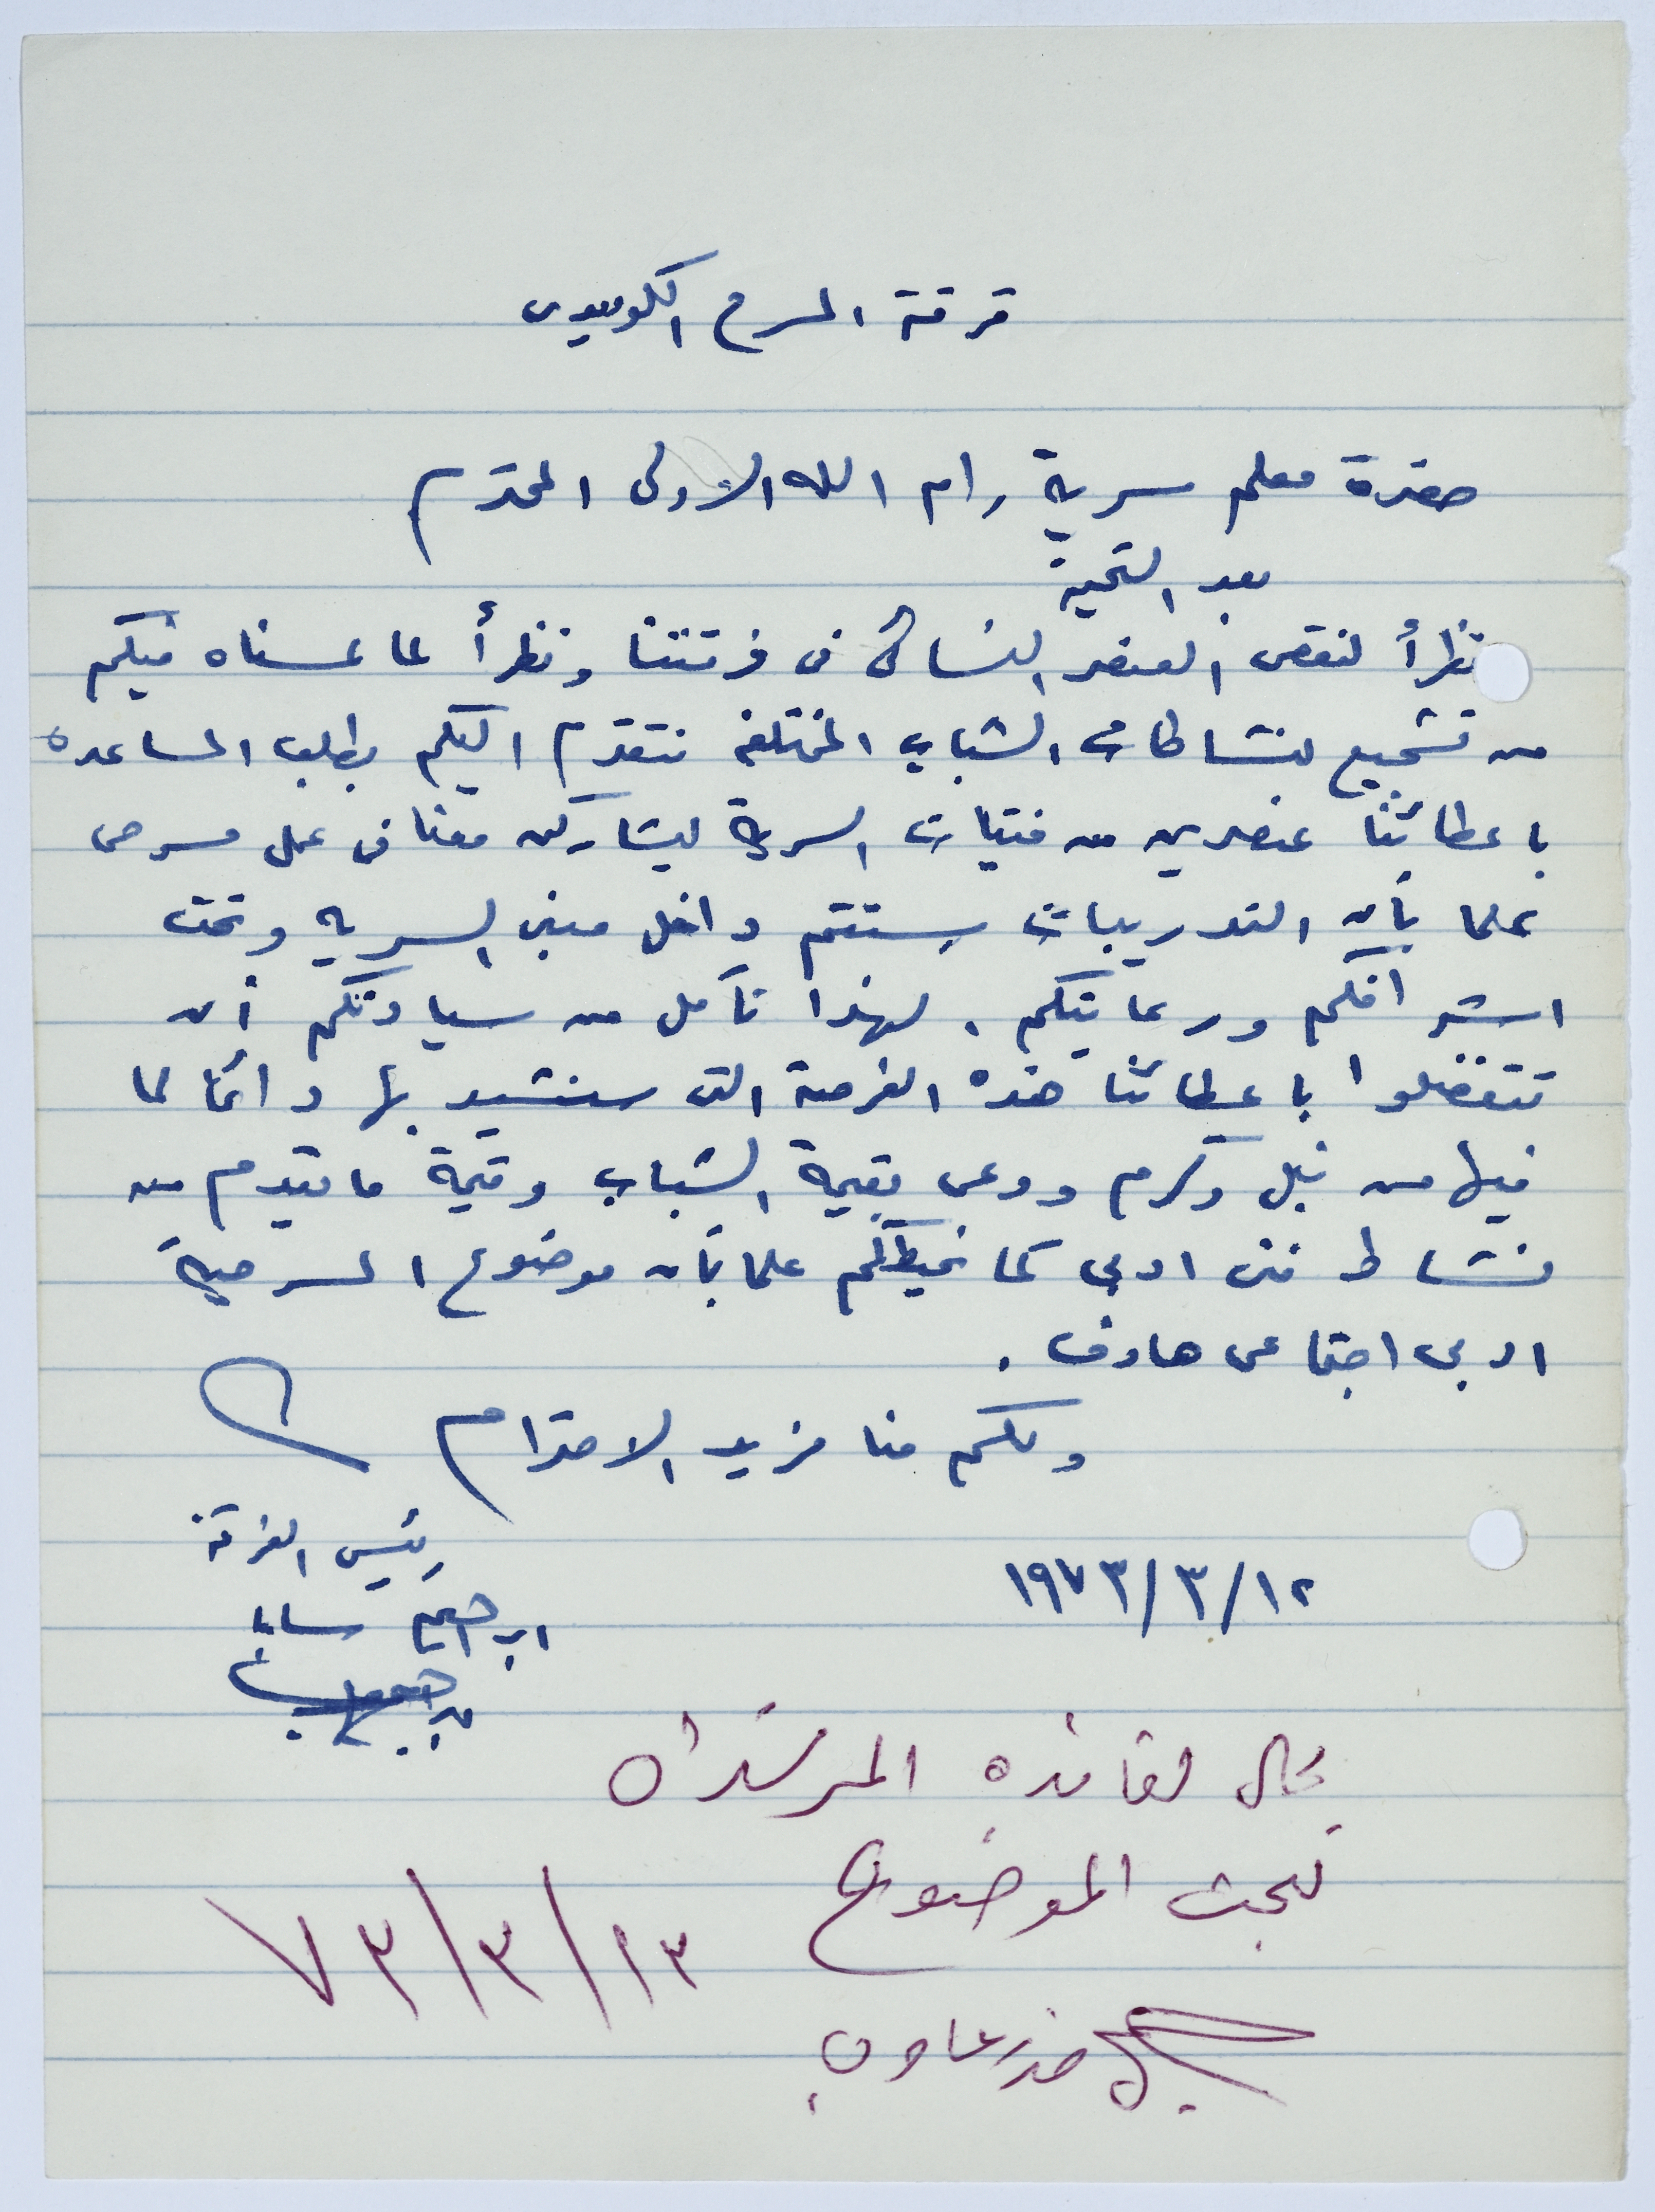 فرقة المسرح الكوميدي
حضرة معلم سرية رام الله الاولى المحترم
بعد التحية
نظرأ لنقص العنصر النسائي في فرقتنا ونظرأ لما لمسناه فيكم
من تشجيع لنشاطات الشباب المختلفه نتقدم اليكم بطلب المساعده
باعطائنا عنصرين من فتيات السرية ليشاركن معنا في عمل مسرحي
علما بأن التدريبات ستتم داخل مبنى السريه وتحت
اشرافكم ورعايتكم . لهذا نأمل من سيادتكم أن
تتفضلوا باعطائنا هذه الفرصة التي سنشيد بها دائما لما
فيها من نبل وكرم ووعي بقيمة الشباب وقيمة ما يقدم من
نشاط فني ادبي كما نحيطكم علما بأن موضوع المسرحية
ادبي اجتماعي هادف .
ولكم منا مزيد الاحترام
رئيس الفرقة
١٩٧٣/٣/١٢
ابراهيم سابا
يحال لقائدة المرشدات
لبحث الموضوع
٧٣/٣/١٣